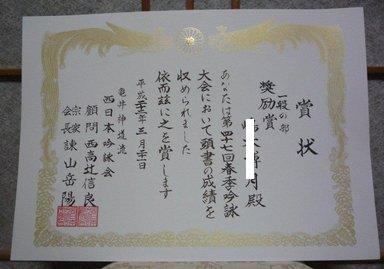 賞状
一般の部
奨励賞
月殿
あなたは第四十七回春季吟詠
大会において頭書の成績を
収められました
依而茲に之を賞します
平成二十三年三月二十日
亀井神道流
西日本吟詠会
顧問西高辻信良
宗家
会長諌山岳陽